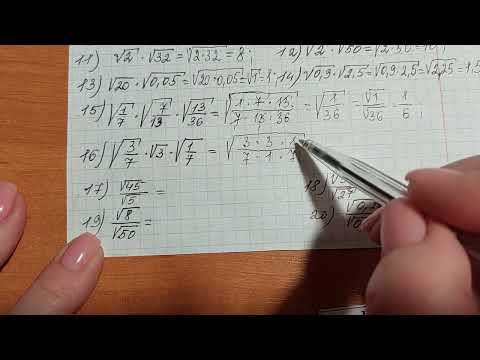 11) √2 · √32 = √2·32 = 8; 12) √2 · √50 = √2·50 = 10;
13) √20 · √0,05 = √20·0,05 = √1 = 1; 14) √0,9 · √2,5 = √0,9·2,5 = √2,25 = 1,5
15) √1/7 · √7/13 · √13/36 = √(1·7·13)/(7·13·36) = √1/36 = √1/√36 = 1/6;
16) √3/7 · √3 · √1/7 = √(3·3·1)/(7·1·7)
17) √45/√5 = 18) √27
19) √8/√50 = 20) √0, √0